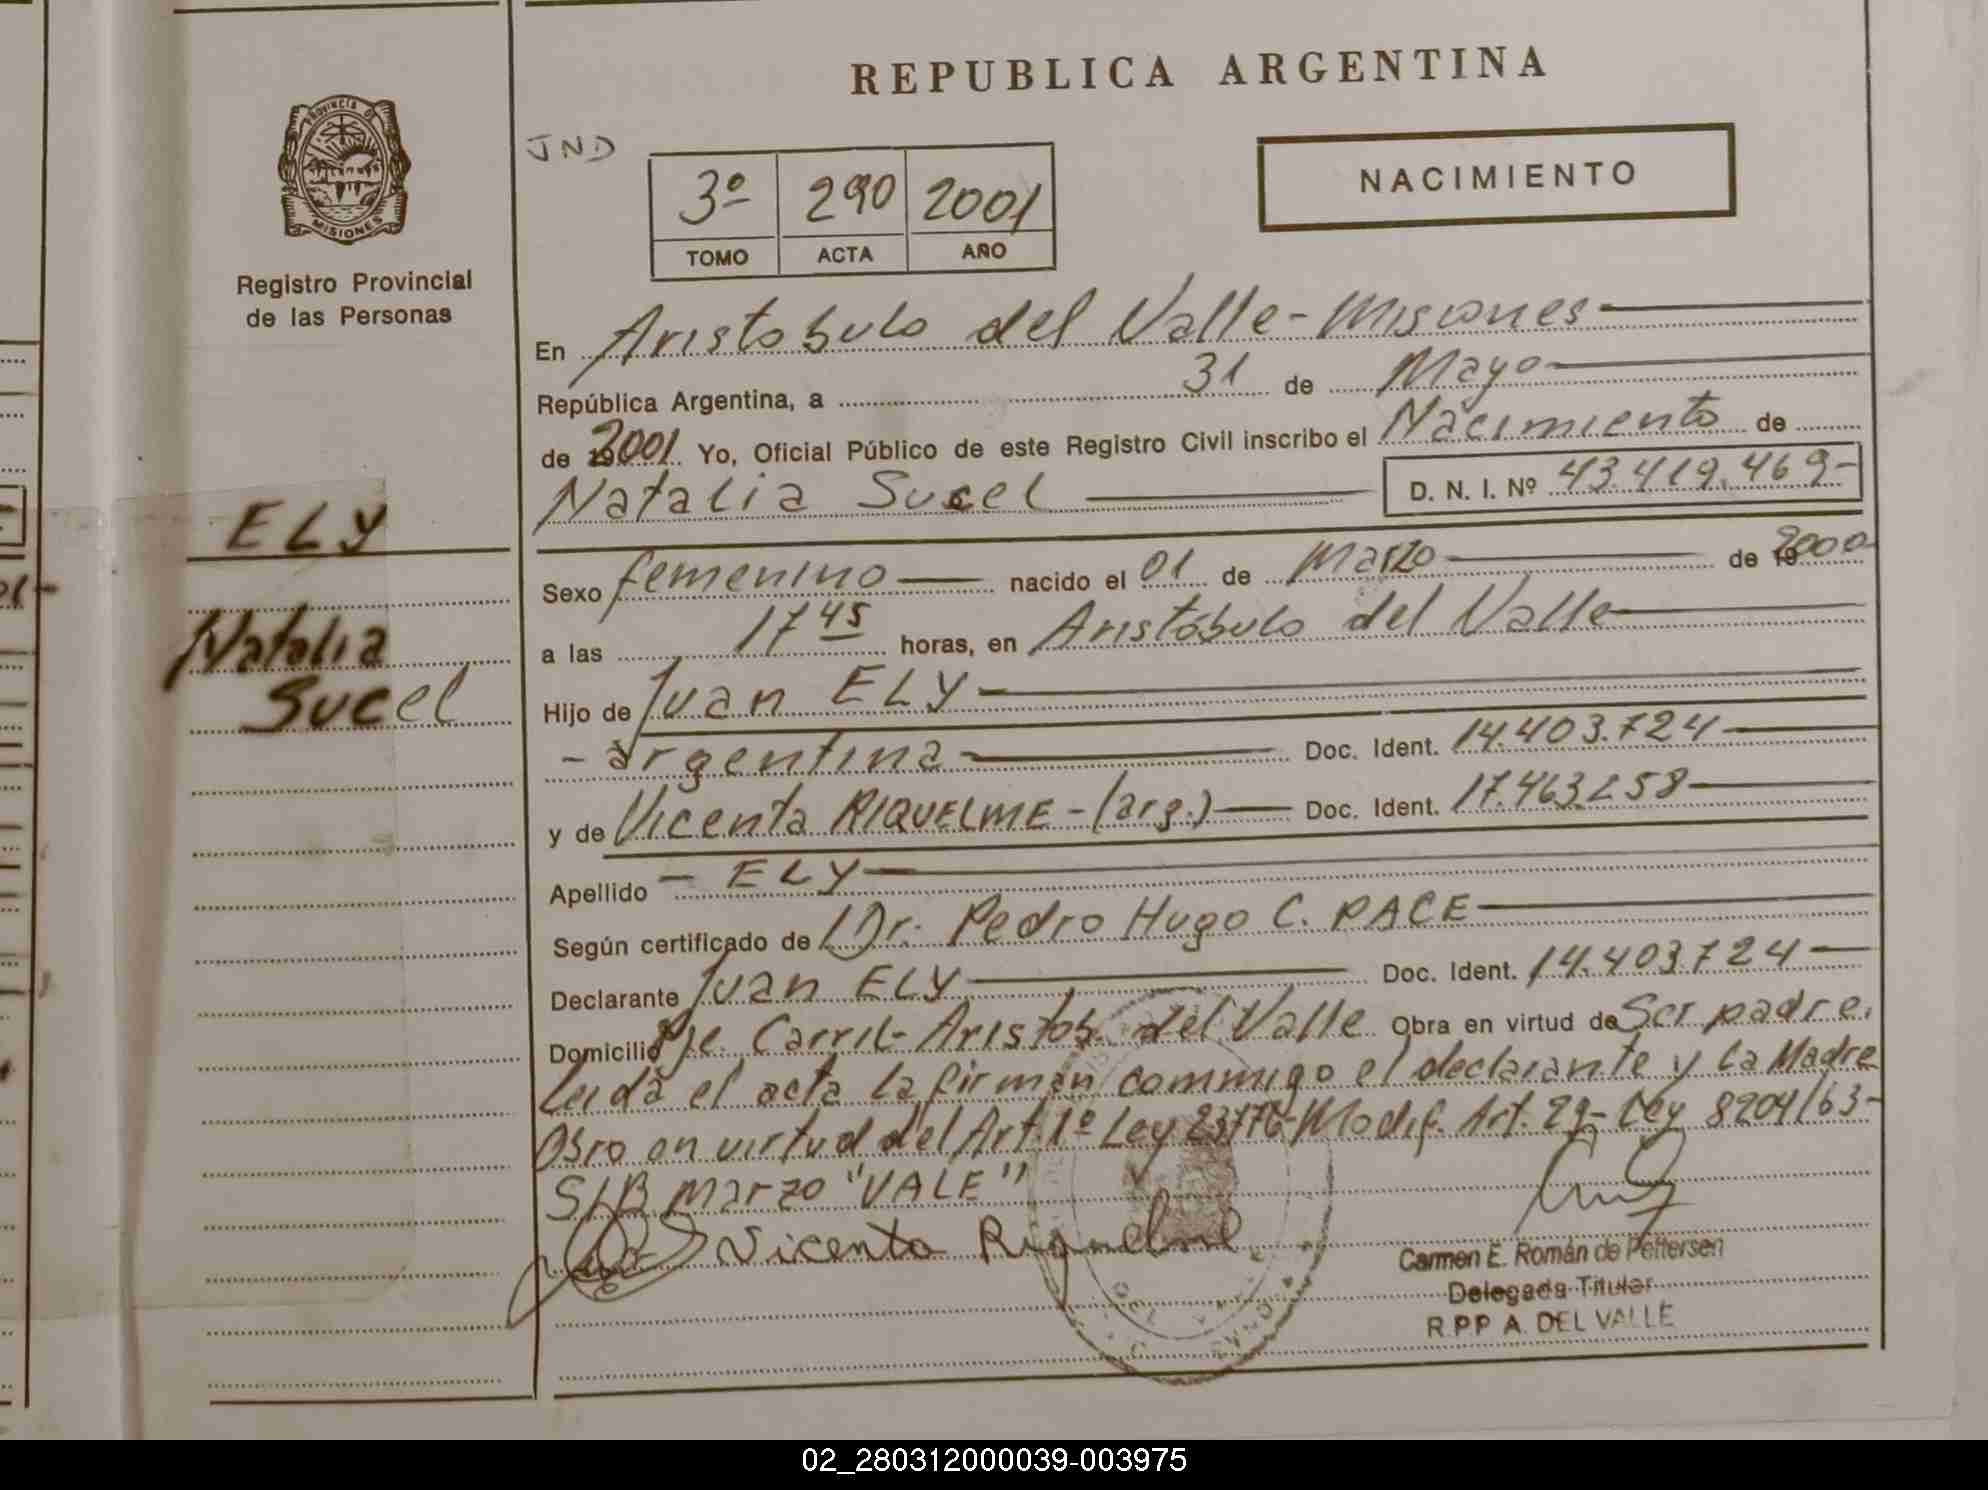 REPUBLICA ARGENTINA
PROVINCIA DE
MISIONES
Registro Provincial
de las Personas
JND
3º 290 2001
TOMO ACTA AÑO
NACIMIENTO
En Aristobulo del Valle-Misiones
República Argentina, a 31 de Mayo
de 2001 Yo, Oficial Público de este Registro Civil inscribo el Nacimiento de
Natalia Sucel D. N. I. Nº 43.419.469-
ELY
Natalia
Sucel
Sexo femenino nacido el 01 de Marzo de 2000-
a las 17 45 horas, en Aristóbulo del Valle
Hijo de Juan ELY
- argentina Doc. Ident. 14.403.724
y de Vicenta RIQUELME-(arg.) Doc. Ident.
Apellido - ELY
Según certificado de Dr. Pedro Hugo C. PACE
Declarante Juan ELY Doc. Ident. 14.403.724
Domicilio Pje. Carril-Aristob. del Valle Obra en virtud de Ser padre.
Leida el acta la firman conmigo el declarante y La Madre
Obro en virtud del Art. 1º Ley Modif. Art. 29- Ley 8204/63-
S/B marzo "VALE"
Vicenta Riquelme
Carmen E. Román de Pettersen
Delegada Titular
R.P.P A. DEL VALLE
02_280312000039-003975